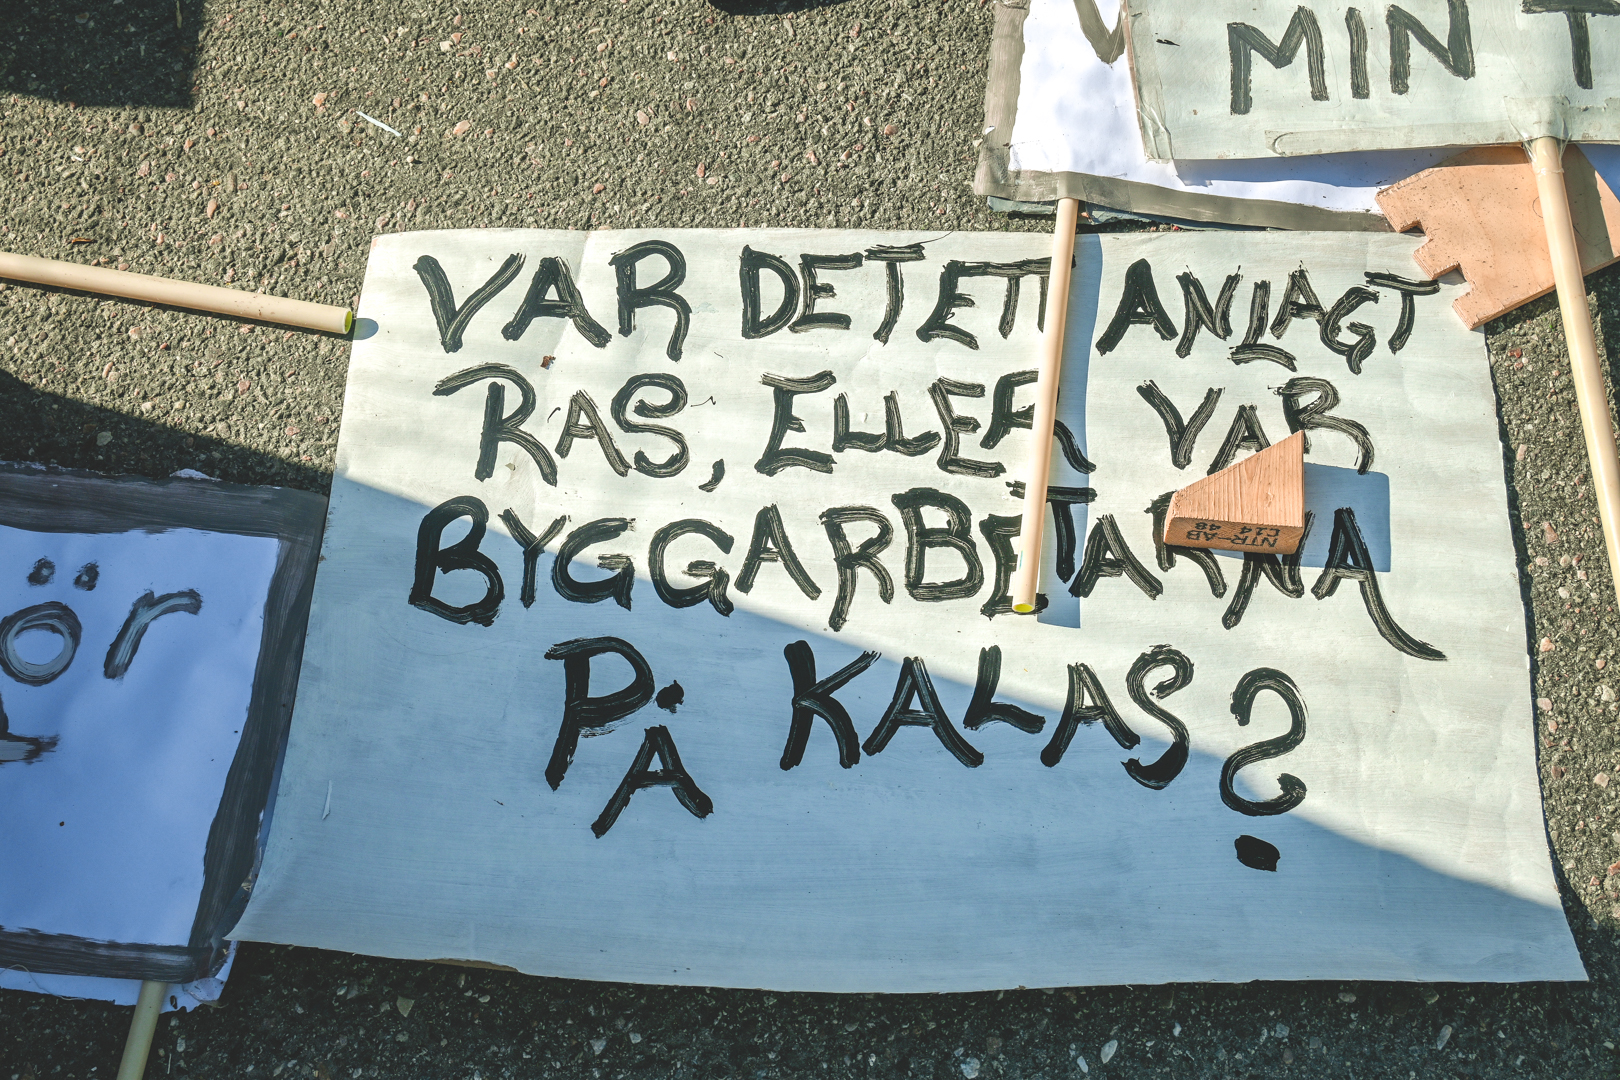 MIN T
VAR DET ETT ANLAGT
RAS, ELLER VAR
BYGGARBETARNA
PÅ KALAS?
ör
NTR-AB
C14
48